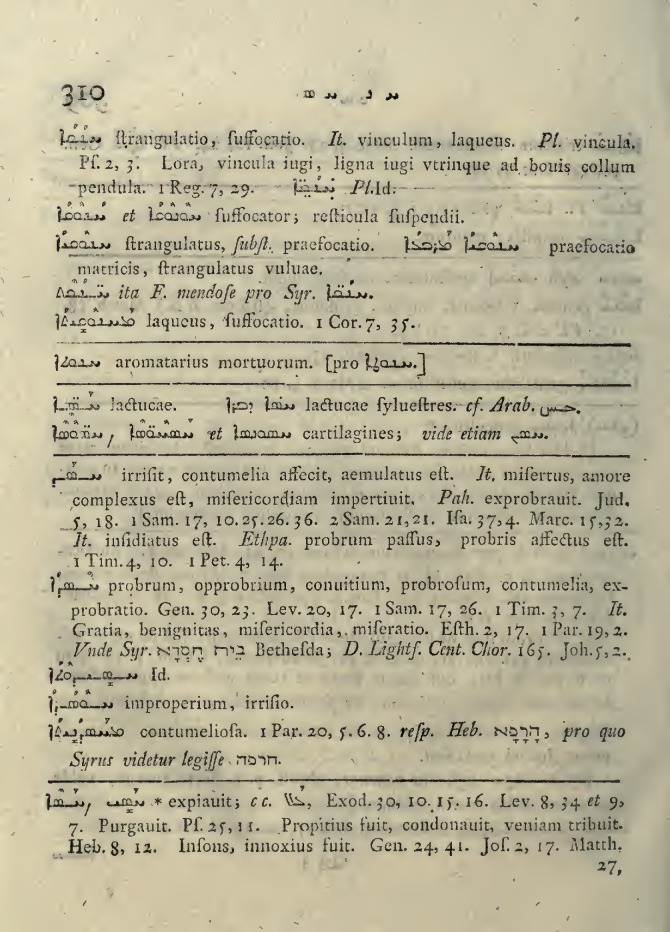 310 ܚ ܢ ܚ ܣ
ſtrangulatio, ſuffocatio. It. vinculum, laqueus. Pl. vincula.
Pſ. 2, 3. Lora, vincula iugi, ligna iugi vtrinque ad bouis collum
pendula. 1 Reg. 7, 29. Pl. Id.
et ſuffocator; reſticula ſuſpendii.
ſtrangulatus, ſubſt. praefocatio. praefocatio
matricis, ſtrangulatus vuluae.
ita F. mendoſe pro Syr.
laqueus, ſuffocatio. 1 Cor. 7, 35.
aromatarius mortuorum. [pro ]
lactucae. lactucae ſylueſtres. cf. Arab.
et cartilagines; vide etiam
irriſit, contumelia affecit, aemulatus eſt. It. miſertus, amore
complexus eſt, miſericordiam impertiuit. Pah. exprobrauit. Jud.
5, 18. 1 Sam. 17, 10. 25. 26. 36. 2 Sam. 21, 21. Iſa. 37, 4. Marc. 15, 32.
It. inſidiatus eſt. Ethpa. probrum paſſus, probris affectus eſt.
1 Tim. 4, 10. 1 Pet. 4, 14.
probrum, opprobrium, conuitium, probroſum, contumelia, ex-
probratio. Gen. 30, 23. Lev. 20, 17. 1 Sam. 17, 26. 1 Tim. 3, 7. It.
Gratia, benignitas, miſericordia, miſeratio. Eſth. 2, 17. 1 Par. 19, 2.
Vnde Syr. בית חסדא Betheſda; D. Lightf. Cent. Chor. 165. Joh. 5, 2.
Id.
improperium, irriſio.
contumelioſa. 1 Par. 20, 5. 6. 8. reſp. Heb. הרפא, pro quo
Syrus videtur legiſſe חרפה.
* expiauit; c c. Exod. 30, 10. 15. 16. Lev. 8, 34 et 9,
7. Purgauit. Pſ. 25, 11. Propitius fuit, condonauit, veniam tribuit.
Heb. 8, 12. Inſons, innoxius fuit. Gen. 24, 41. Joſ. 2, 17. Matth.
27,